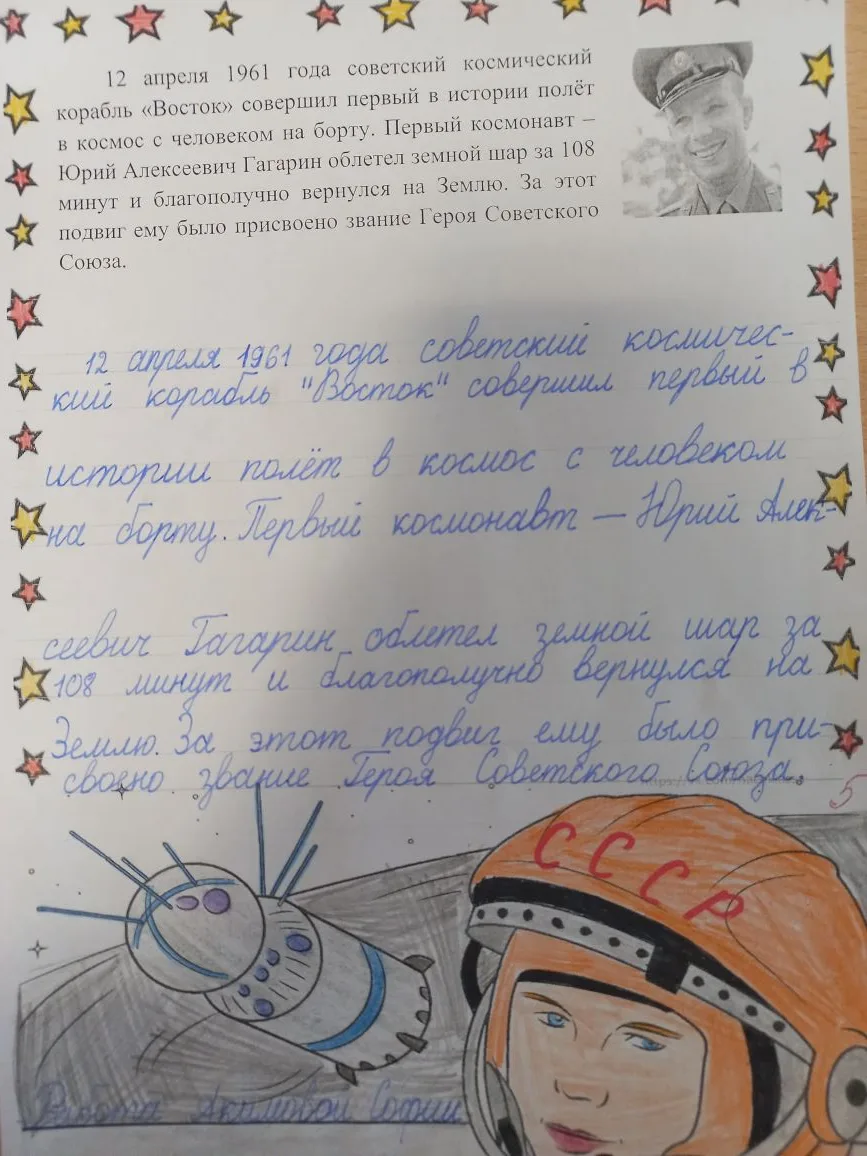 12 апреля 1961 года советский космический
корабль «Восток» совершил первый в истории полёт
в космос с человеком на борту. Первый космонавт –
Юрий Алексеевич Гагарин облетел земной шар за 108
минут и благополучно вернулся на Землю. За этот
подвиг ему было присвоено звание Героя Советского
Союза.
12 апреля 1961 года советский космичес-
кий корабль "Восток" совершил первый в
истории полёт в космос с человеком
на борту. Первый космонавт — Юрий Алек-
сеевич Гагарин облетел земной шар за
108 минут и благополучно вернулся на
Землю. За этот подвиг ему было при-
своено звание Героя Советского Союза.
5
СССР
Работа Акимовой Софии